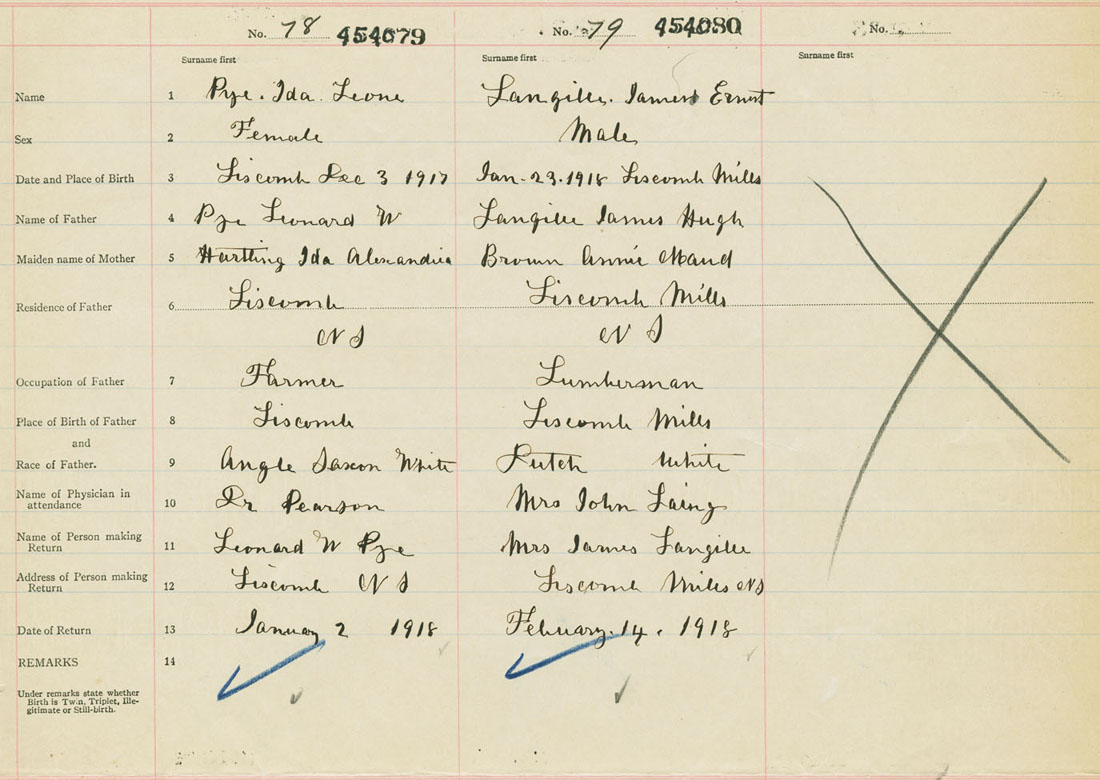 No. 78 454079 No. 79 454080 No.
Surname first Surname first Surname first
Name 1 Pye. Ida Leone Langille. James Ernest
Sex 2 Female Male
Date and Place of Birth 3 Liscomb Dec 3 1917 Jan-23-1918 Liscomb Mills
Name of Father 4 Pye Leonard W Langille James Hugh
Maiden name of Mother 5 Hartling Ida Alexandria Brown Annie Maud
Residence of Father 6 Liscomb Liscomb Mills
N S N S
Occupation of Father 7 Farmer Lumberman
Place of Birth of Father 8 Liscomb Liscomb Mills
and
Race of Father. 9 Angle Saxon White Dutch White
Name of Physician in
attendance 10 Dr Pearson Mrs John Laing
Name of Person making
Return 11 Leonard W Pye Mrs James Langille
Address of Person making
Return 12 Liscomb N S Liscomb Mills NS
Date of Return 13 January 2 1918 February. 14. 1918
REMARKS 14
Under remarks state whether
Birth is Twin, Triplet, Ille-
gitimate or Still-birth.